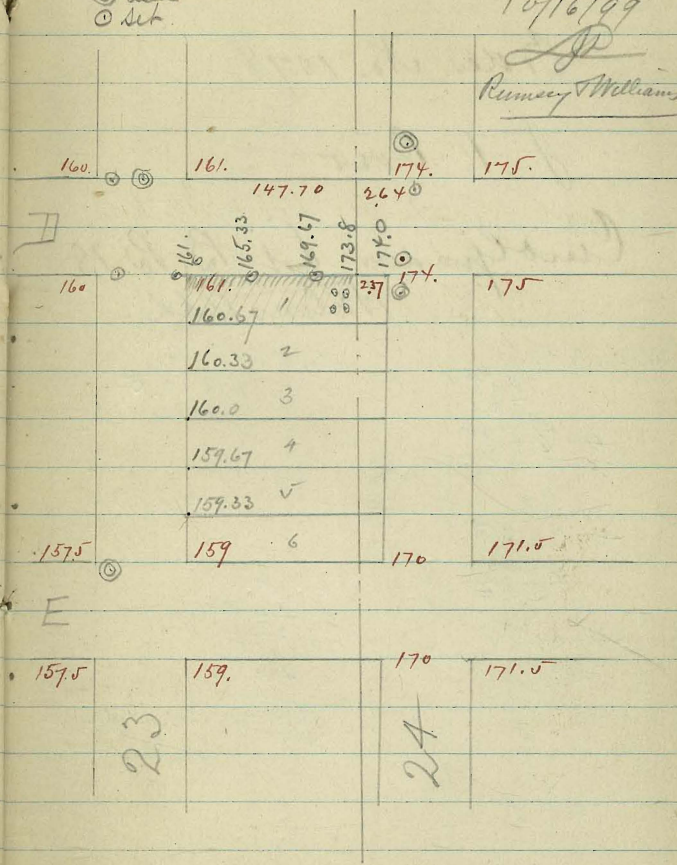 ⊙ Set
10/16/99
Rumsey & Williams
160. 161. 174. 175.
147.70 26.4
D
161. 165.33 169.67 173.8 174.0
160 161. 23.7 174. 175
160.67 1
160.33 2
160.0 3
159.67 4
159.33 5
157.5 159 6 170 171.5
E
157.5 159. 170 171.5
23 24